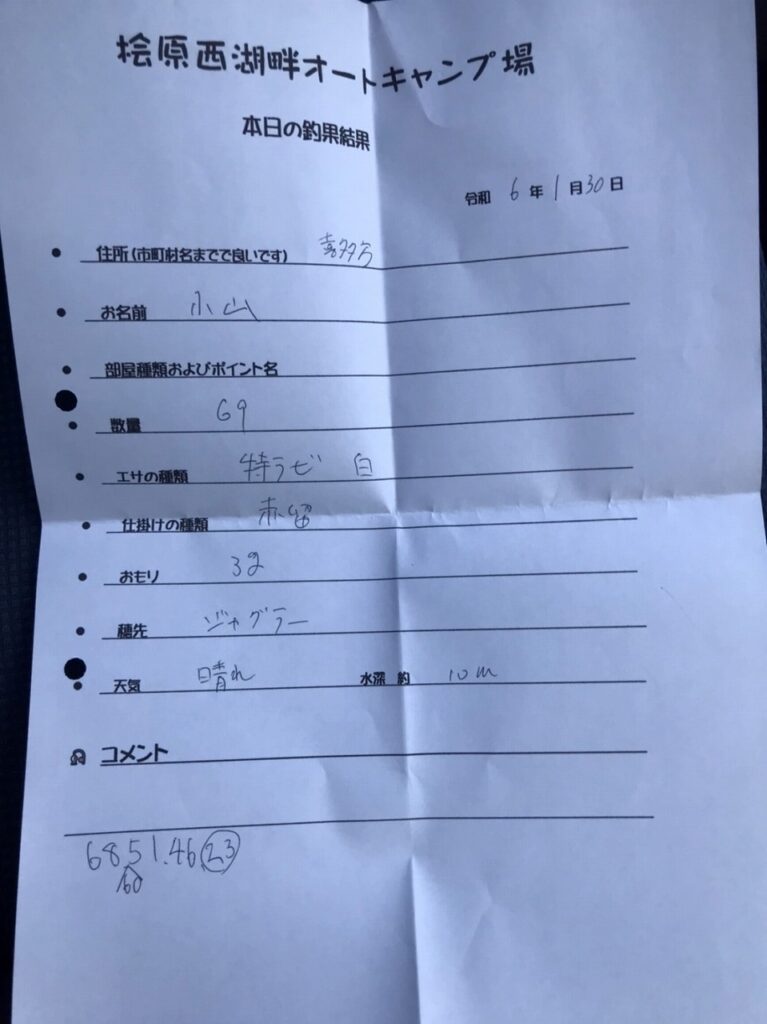 桧原西湖畔オートキャンプ場
本日の釣果結果
令和 6 年 1 月 30 日
住所(市町村名までで良いです) 喜多方
お名前 小山
部屋種類およびポイント名
数量 69
エサの種類 特ラビ 白
仕掛けの種類 赤留
おもり 3g
穂先 ジャグラー
天気 晴れ 水深 約 10m
コメント
68.51.46 23
60